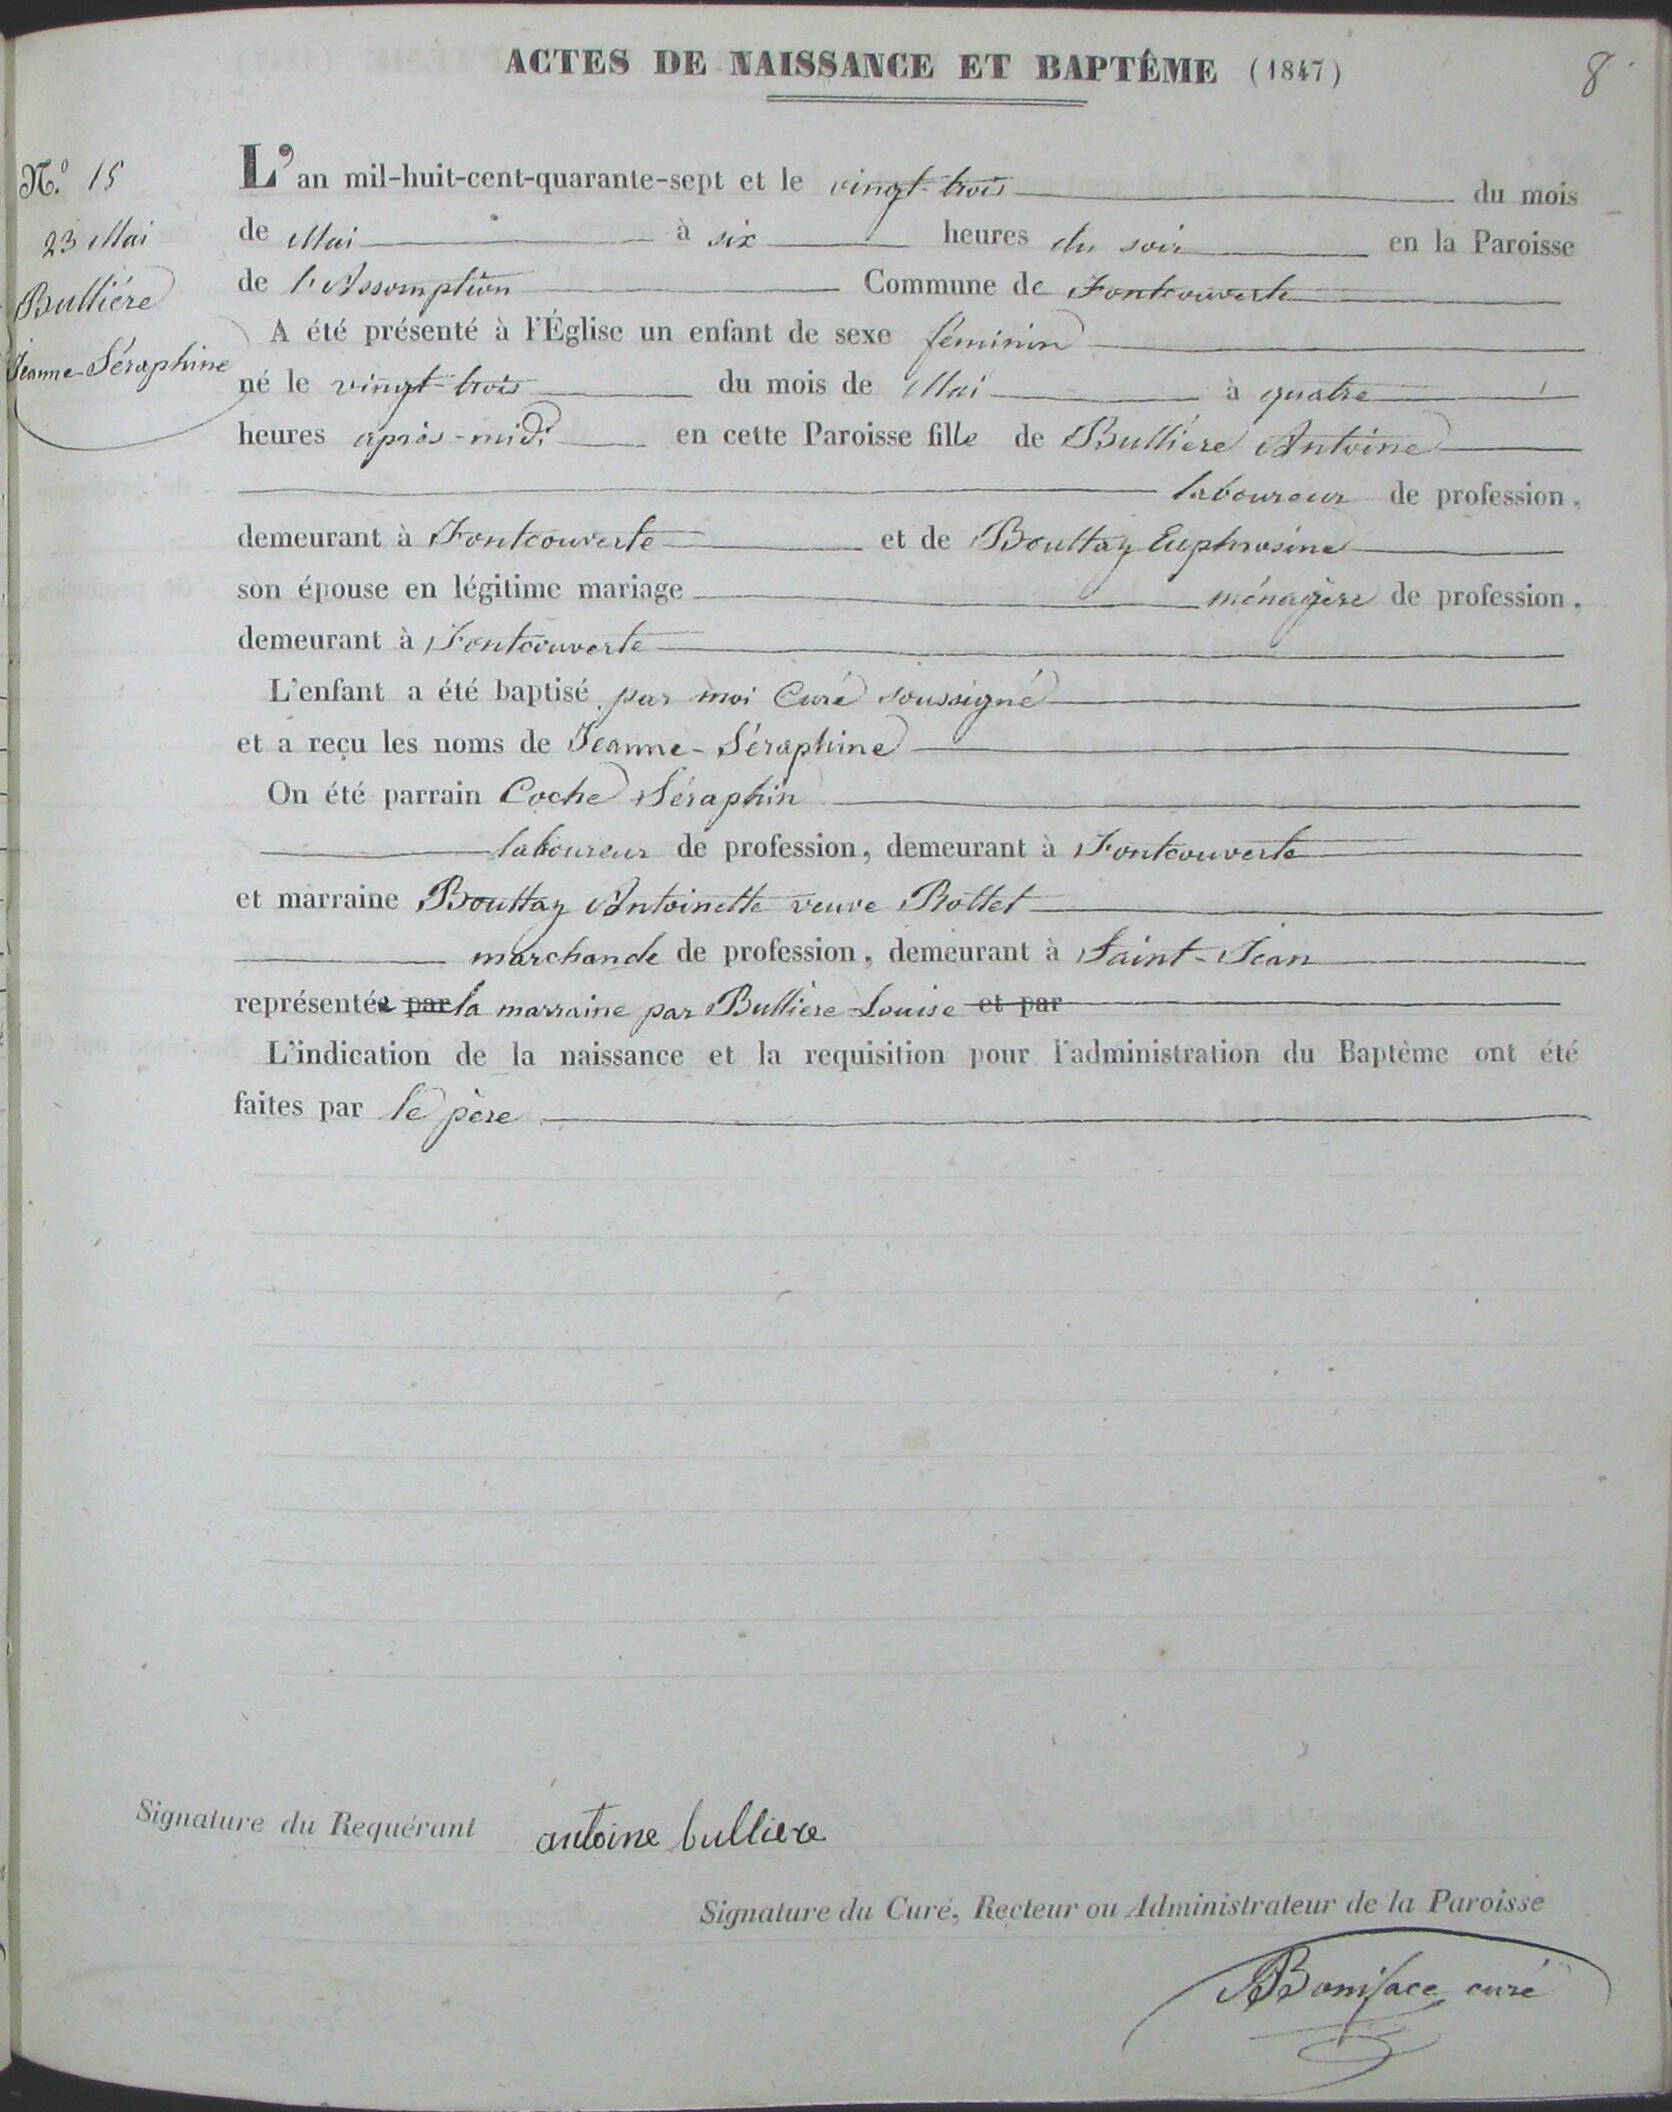 ACTES DE NAISSANCE ET BAPTÊME (1847)
8
N.º 15
23 Mai
Bullière
Jeanne-Séraphine
L'an mil-huit-cent-quarante-sept et le vingt-trois du mois
de Mai à six heures du soir en la Paroisse
de l'Assomption Commune de Fontcouverte
A été présenté à l'Église un enfant de sexe féminin
né le vingt-trois du mois de Mai à quatre
heures après-midi en cette Paroisse fille de Bullière Antoine
laboureur de profession,
demeurant à Fontcouverte et de Bouttaz Euphrosine
son épouse en légitime mariage ménagère de profession,
demeurant à Fontcouverte
L'enfant a été baptisé par moi Curé soussigné
et a reçu les noms de Jeanne-Séraphine
On été parrain Coche Séraphin
laboureur de profession, demeurant à Fontcouverte
et marraine Bouttaz Antoinette veuve Rottet
marchande de profession, demeurant à Saint-Jean
représentée par la marraine par Bullière Louise et par
L'indication de la naissance et la requisition pour l'administration du Baptême ont été
faites par le père
Signature du Requérant antoine bulliere
Signature du Curé, Recteur ou Administrateur de la Paroisse
Boniface curé